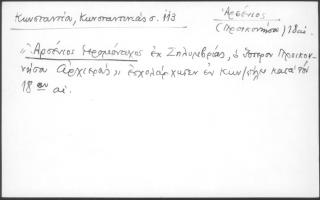 Κωνσταντία, Κωνσταντινιάς σ. 113
Ἀρσένιος
(Προικονήσου) 18 αἰ.
"Ἀρσένιος Ἱερομόναχος ἐκ Σηλυβρίας, ὁ ὕστερον Προικον-
νήσου ἀρχιερεύς" ἐσχολάρχησεν ἐν Κων/πόλει κατὰ τὸν
18ον αἰ.